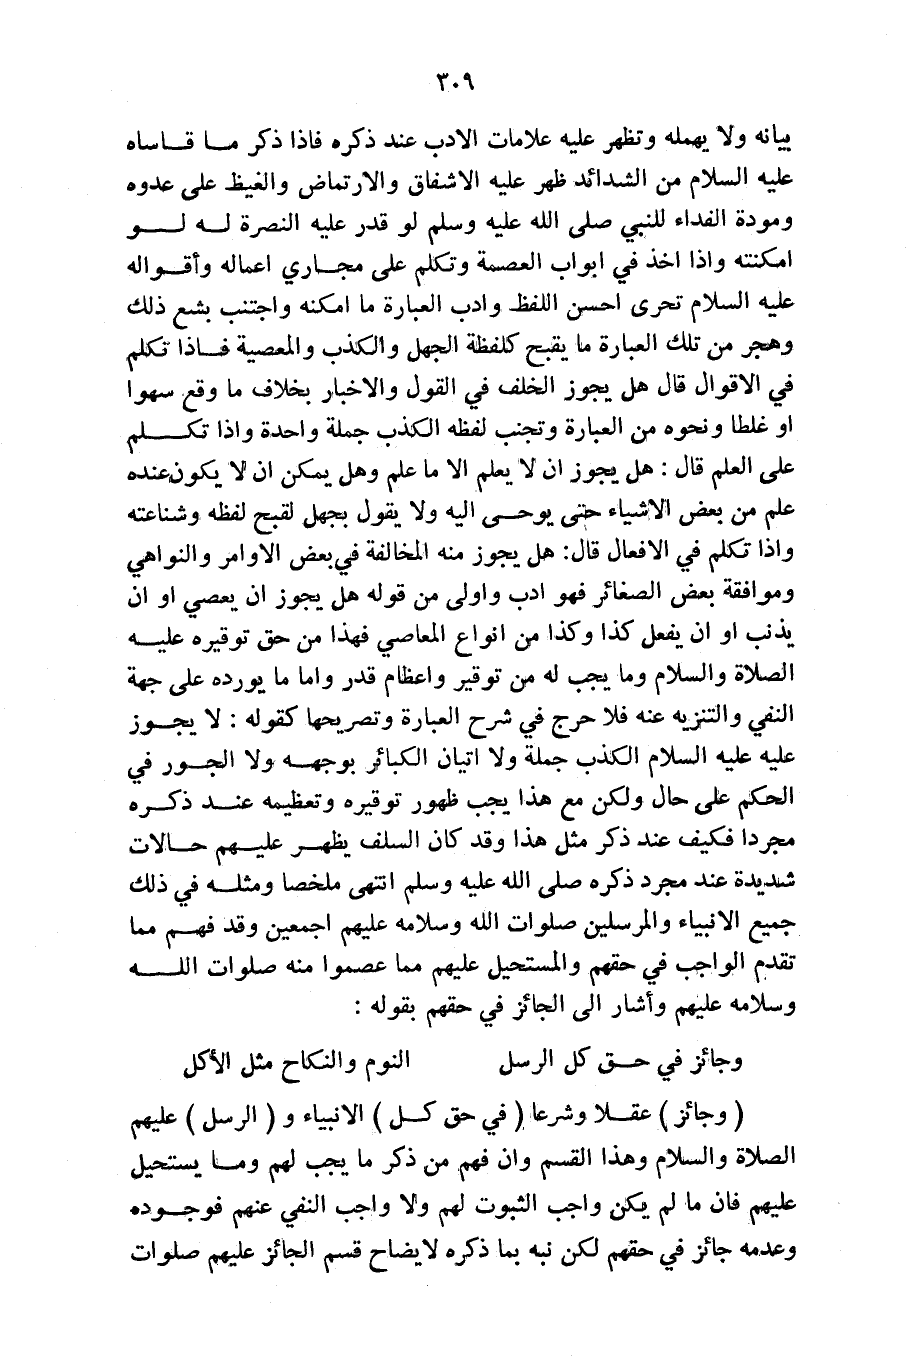 ٣٠٩
بيانه ولا يهمله وتظهر عليه علامات الادب عند ذكره فاذا ذكر مـا قـاساه
عليه السلام من الشدائد ظهر عليه الاشفاق والارتماض والغيظ على عدوه
ومودة الفداء للنبي صلى الله عليه وسلم لو قدر عليه النصرة لـه لـو
امكنته واذا اخذ في ابواب العصمة وتكلم على مجـاري اعماله وأقـواله
عليه السلام تحرى احسن اللفظ وادب العبارة ما امكنه واجتنب بشع ذلك
وهجر من تلك العبارة ما يقبح كلفظة الجهل والكذب والمعصية فـاذا تكلم
في الاقوال قال هل يجوز الخلف في القول والاخبار بخلاف ما وقع سهوا
او غلطا ونحوه من العبارة وتجنب لفظه الكذب جملة واحدة واذا تكـلم
على العلم قال : هل يجوز ان لا يعلم الا ما علم وهل يمكن ان لا يكون عنده
علم من بعض الاشياء حتى يوحـى اليه ولا يقول بجهل لقبح لفظه وشناعته
واذا تكلم في الافعال قال: هل يجوز منه المخالفة في بعض الاوامر والنواهي
وموافقة بعض الصغائر فهو ادب واولى من قوله هل يجوز ان يعصي او ان
يذنب او ان يفعل كذا وكذا من انواع المعاصي فهذا من حق توقيره عليـه
الصلاة والسلام وما يجب له من توقير واعظام قدر واما ما يورده على جهة
النفي والتنزيه عنه فلا حرج في شرح العبارة وتصريحها كقوله : لا يجـوز
عليه عليه السلام الكذب جملة ولا اتيان الكبائر بوجهـه ولا الجـور في
الحكم على حال ولكن مع هذا يجب ظهور توقيره وتعظيمه عنـد ذكـره
مجردا فكيف عند ذكر مثل هذا وقد كان السلف يظهـر عليـهم حـالات
شديدة عند مجرد ذكره صلى الله عليه وسلم انتهى ملخصا ومثلـه في ذلك
جميع الانبياء والمرسلين صلوات الله وسلامه عليهم اجمعين وقد فهـم مما
تقدم الواجب في حقهم والمستحيل عليهم مما عصموا منه صلوات اللـه
وسلامه عليهم وأشار الى الجائز في حقهم بقوله :
وجائز في حـق كل الرسل النوم والنكاح مثل الأكل
( وجائز ) عقـلا وشرعا ( في حق كـل ) الانبياء و ( الرسل ) عليهم
الصلاة والسلام وهذا القسم وان فهم من ذكر ما يجب لهم ومـا يستحيل
عليهم فان ما لم يكن واجب الثبوت لهم ولا واجب النفي عنهم فوجـوده
وعدمه جائز في حقهم لكن نبه بما ذكره لايضاح قسم الجائز عليهم صلوات